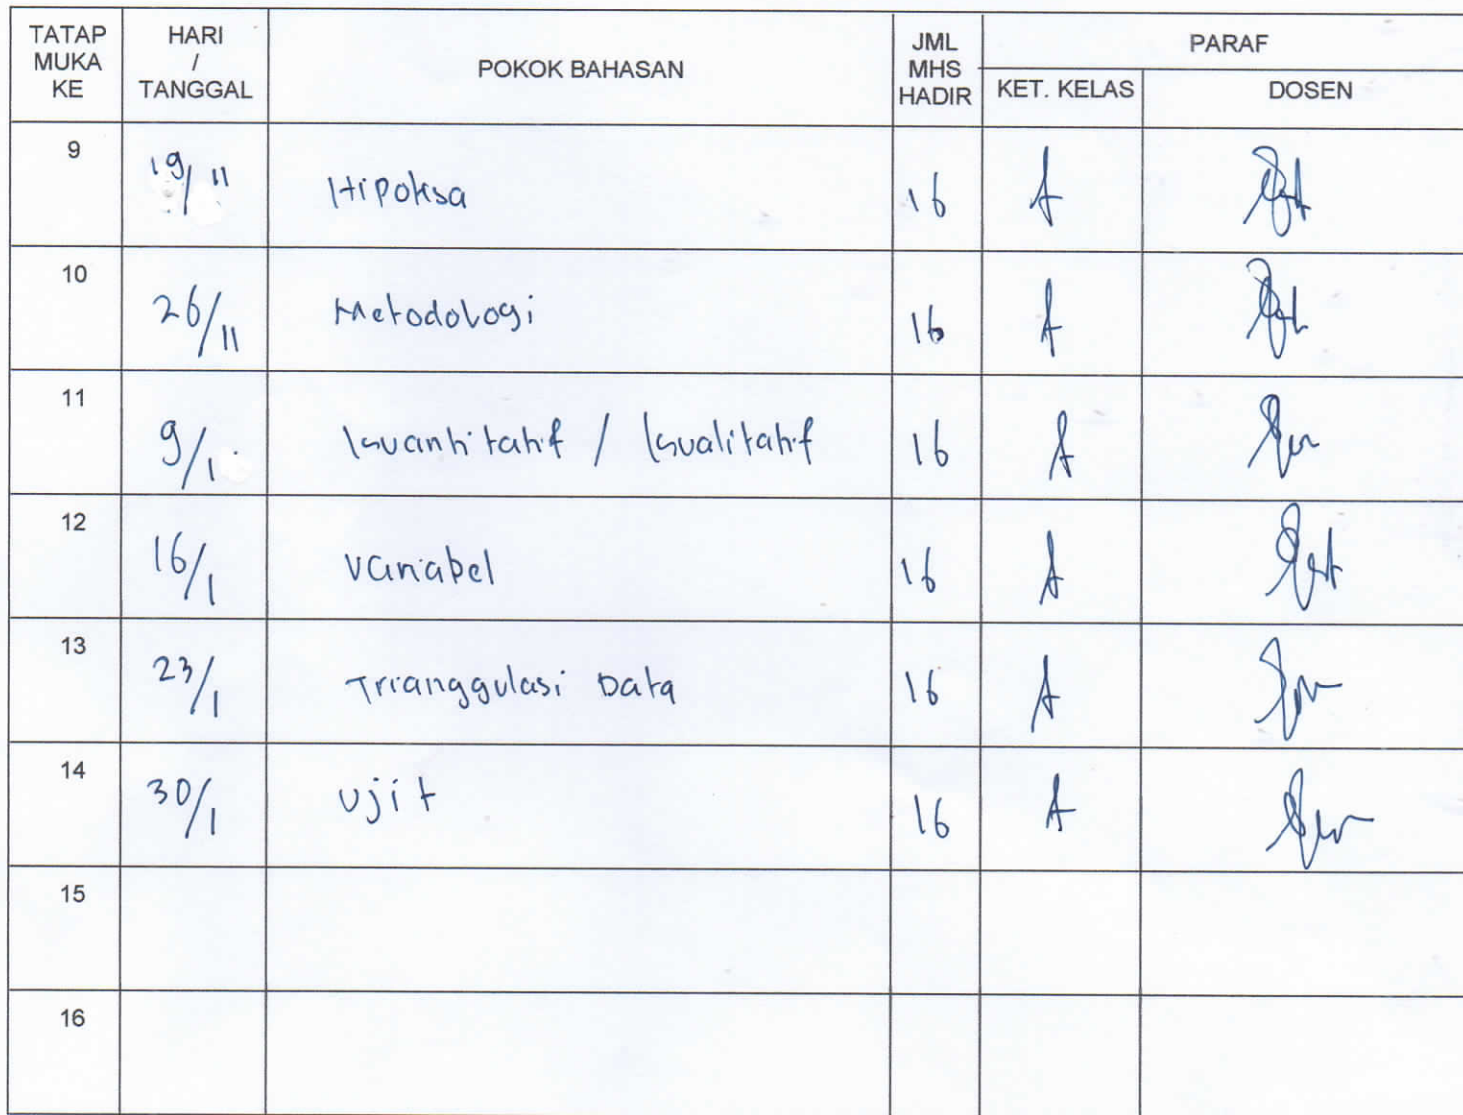 TATAP MUKA KE HARI / TANGGAL POKOK BAHASAN JML MHS HADIR PARAF
KET. KELAS DOSEN
9 19/11 Hipotesa 16
10 26/11 Metodologi 16
11 9/1 Kuantitatif / Kualitatif 16
12 16/1 Variabel 16
13 23/1 Trianggulasi Data 16
14 30/1 Uji t 16
15
16